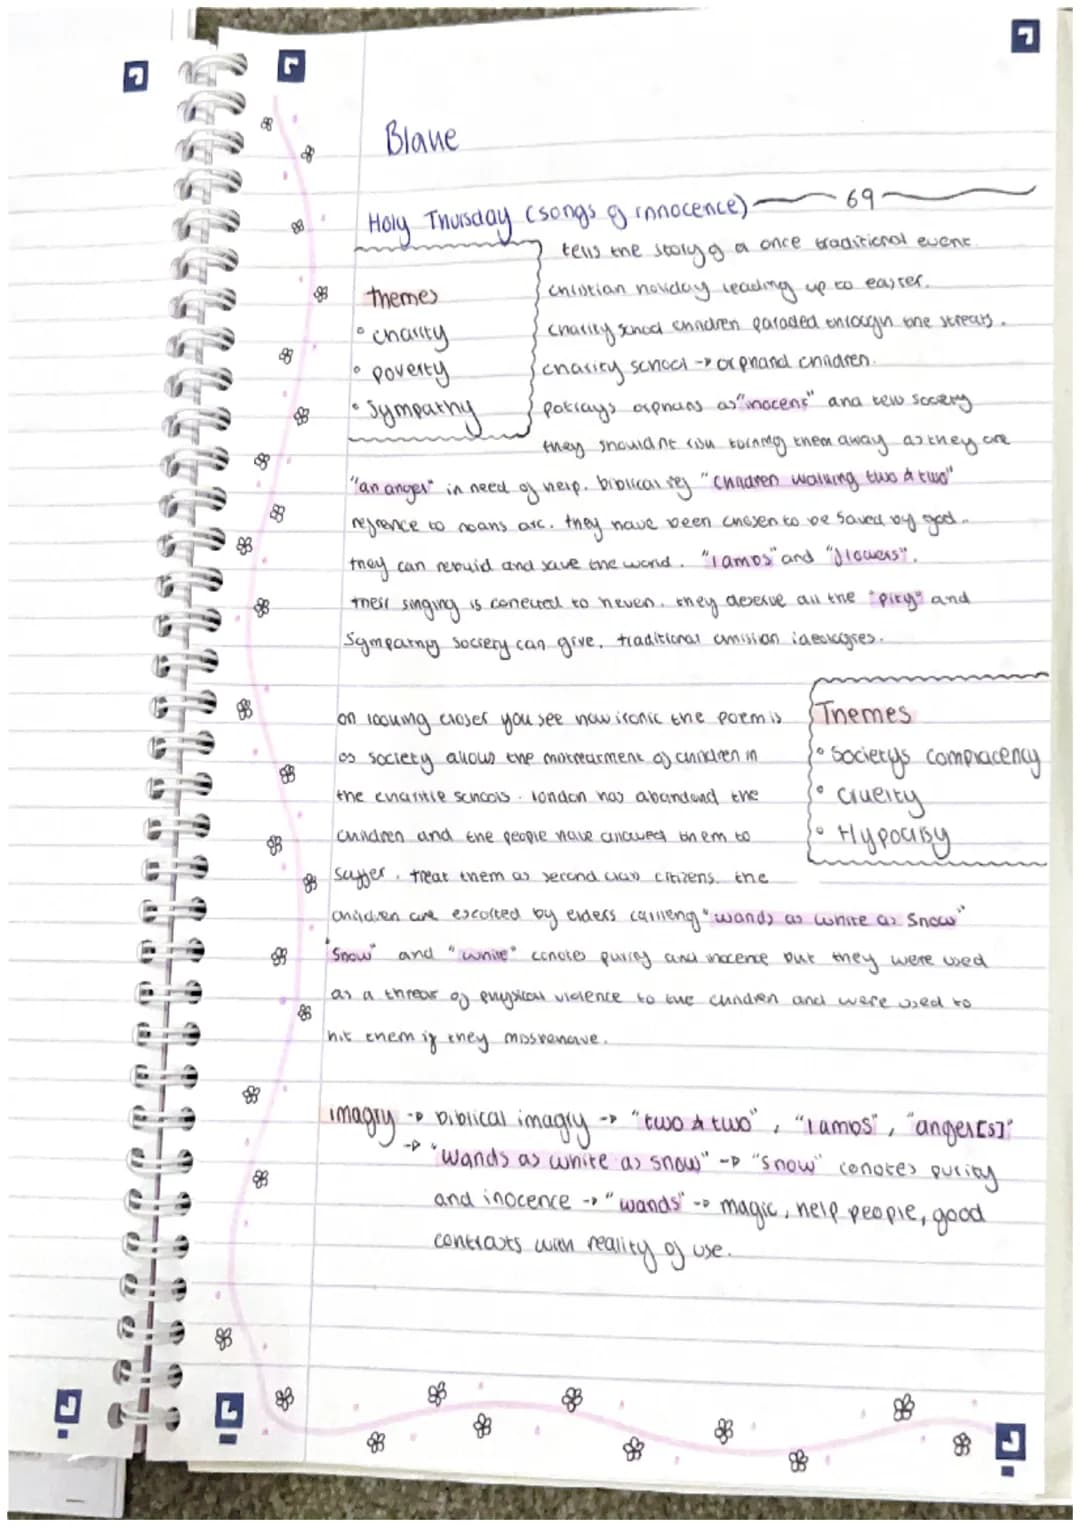 Blake
Holy Thursday (songs of innocence) — 69 —
tells the story of a once traditional event.
christian holiday leading up to easter.
Themes
• charity
• poverty
• sympathy
charity school children paraded through the streets.
charity school -> orphand children.
potrays orphans as "inocent" and tells society
they shouldnt risk turning them away as they are
"an angel" in need of help. biblical ref "children walking two & two"
refrence to noahs arc. they have been chosen to be saved by god.
they can rebuid and save the world. "lambs" and "flowers".
their singing is to heven. they deserve all the "pity" and
sympathy society can give. traditional ideologies.
on looking closer you see how ironic the poem is
as society allows the mistreatment of children in
the schools. london has abandond the
children and the people have allowed them to
suffer. treat them as second class citizens. the
Themes
• societys complacency
• cruelty
• Hypocrisy
children are escorted by elders "wands as white as snow"
"snow" and "white" conotes purity and inocence but they were used
as a threat of physical violence to the children and were used to
hit them if they missbehave.
imagry -> biblical imagry -> "two & two", "lambs", "angel[s]"
-> "wands as white as snow" -> "snow" conotes purity
and inocence -> "wands" -> magic, help people, good
contrasts with reality of use.